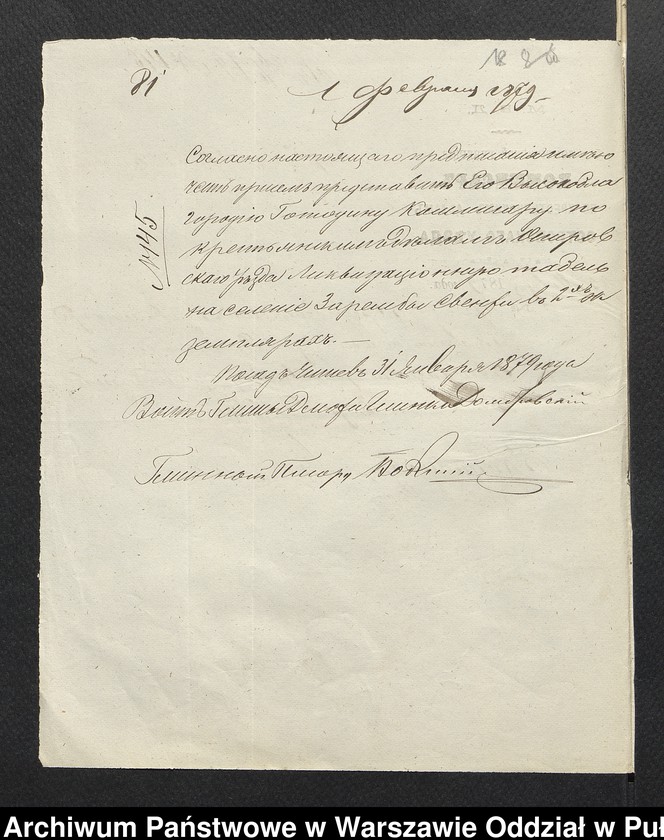 81
1 Февраля 1879
№145
Согласно настоящаго предписания имею
честь при семъ представить Его Высокобла
городію Господину Коммисару по
крестьянскимъ Деламъ Остров
скаго Уѣзда Ликвидаціонную табель
на селеніе Зарембы Свенхи въ 2хъ эк
земплярахъ. —
Посадъ Чижевъ 31 Января 1879 года
Войтъ Гмины Дмохи Глинки Домбровскій
Гминный Писарь
Archiwum Państwowe w Warszawie Oddział w Pu